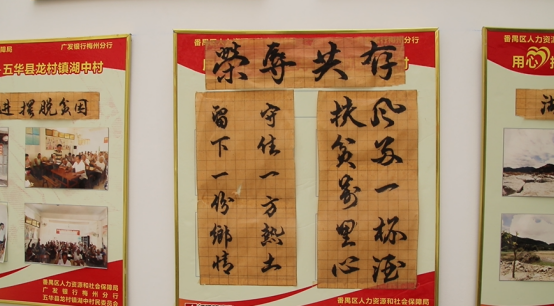 障局 广发银行梅州分行
五华县龙村镇湖中村
进摆脱贫困
番禺区人力资源和社会保障局
广发银行梅州分行
五华县龙村镇湖中村民委员会
番禺区人力
榮辱共存
风雨一杯酒
扶贫萬里心
守住一方热土
留下一份鄉情
番禺区人力资源和社会保障局
番禺区人力资源
用心